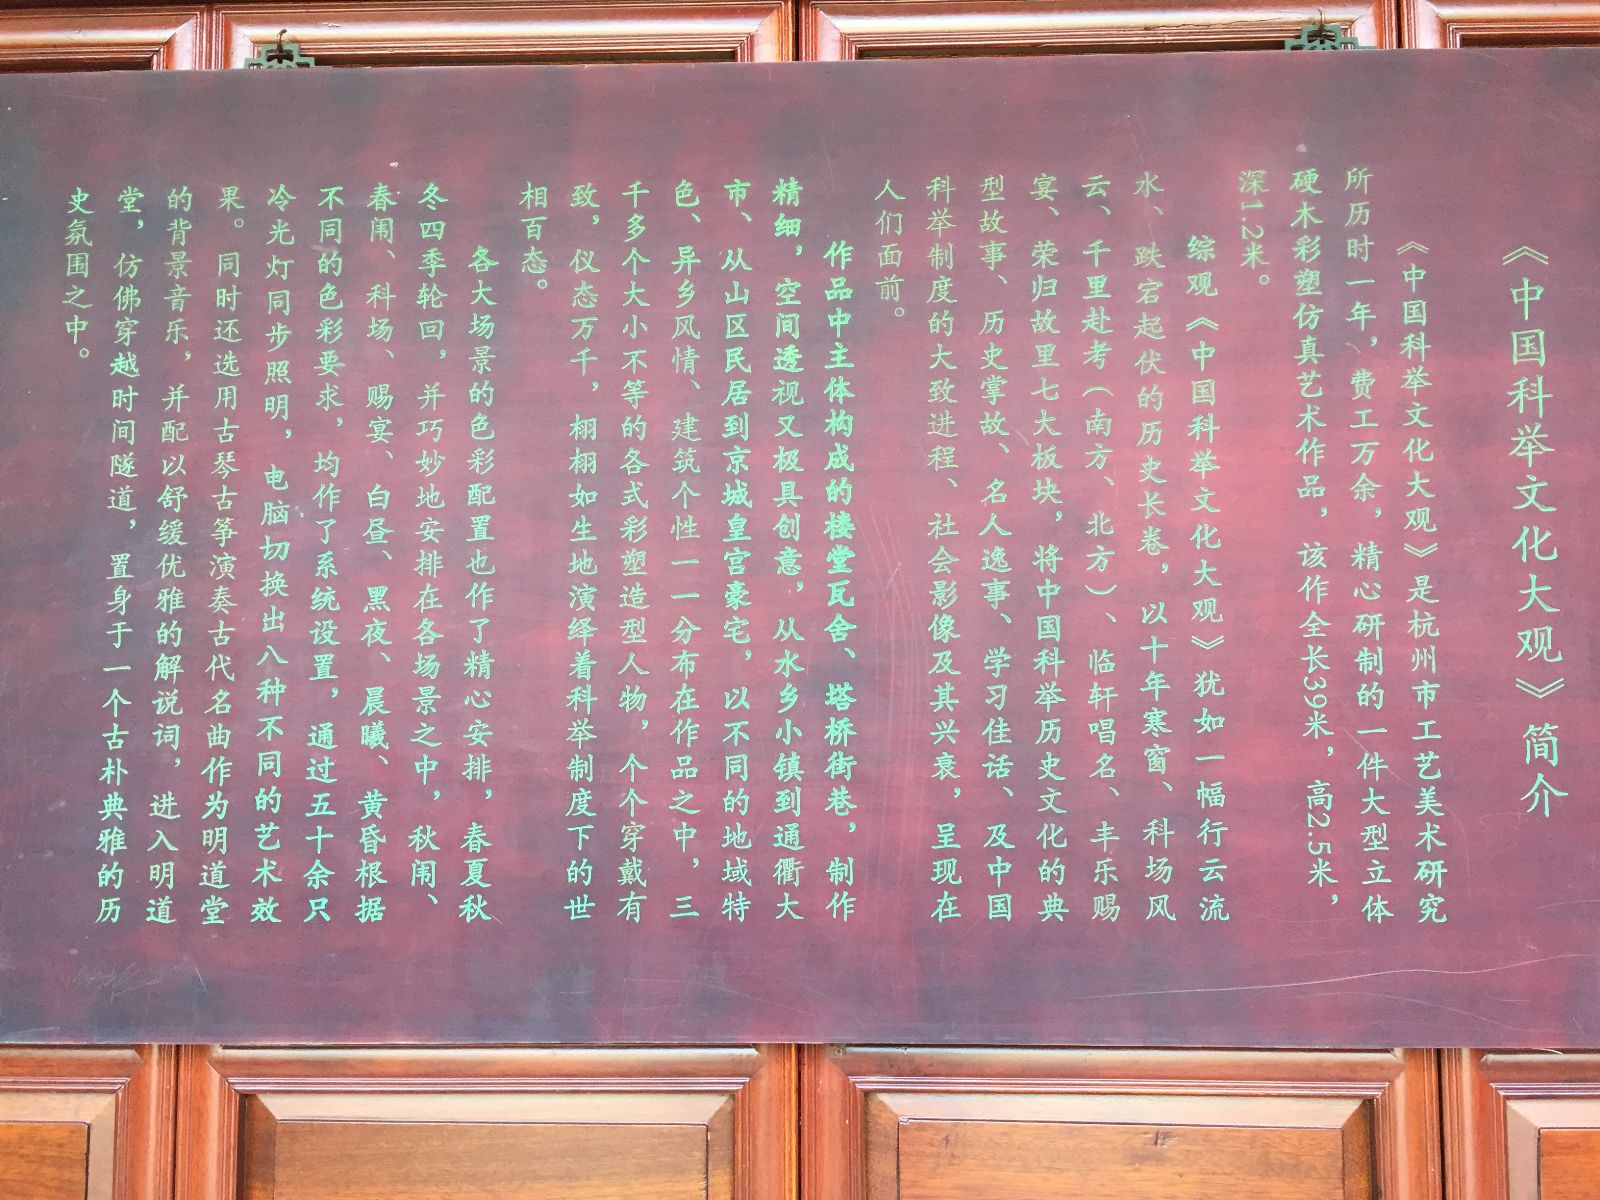 《中国科举文化大观》简介
《中国科举文化大观》是杭州市工艺美术研究
所历时一年，费工万余，精心研制的一件大型立体
硬木彩塑仿真艺术作品，该作全长39米，高2.5米，
深1.2米。
综观《中国科举文化大观》犹如一幅行云流
水、跌宕起伏的历史长卷，以十年寒窗、科场风
云、千里赴考（南方、北方）、临轩唱名、丰乐赐
宴、荣归故里七大板块，将中国科举历史文化的典
型故事、历史掌故、名人逸事、学习佳话、及中国
科举制度的大致进程、社会影像及其兴衰，呈现在
人们面前。
作品中主体构成的楼堂瓦舍、塔桥街巷，制作
精细，空间透视又极具创意，从水乡小镇到通衢大
市、从山区民居到京城皇宫豪宅，以不同的地域特
色、异乡风情、建筑个性一一分布在作品之中，三
千多个大小不等的各式彩塑造型人物，个个穿戴有
致，仪态万千，栩栩如生地演绎着科举制度下的世
相百态。
各大场景的色彩配置也作了精心安排，春夏秋
冬四季轮回，并巧妙地安排在各场景之中，秋闱、
春闱、科场、赐宴、白昼、黑夜、晨曦、黄昏根据
不同的色彩要求，均作了系统设置，通过五十余只
冷光灯同步照明，电脑切换出八种不同的艺术效
果。同时还选用古琴古筝演奏古代名曲作为明道堂
的背景音乐，并配以舒缓优雅的解说词，进入明道
堂，仿佛穿越时间隧道，置身于一个古朴典雅的历
史氛围之中。